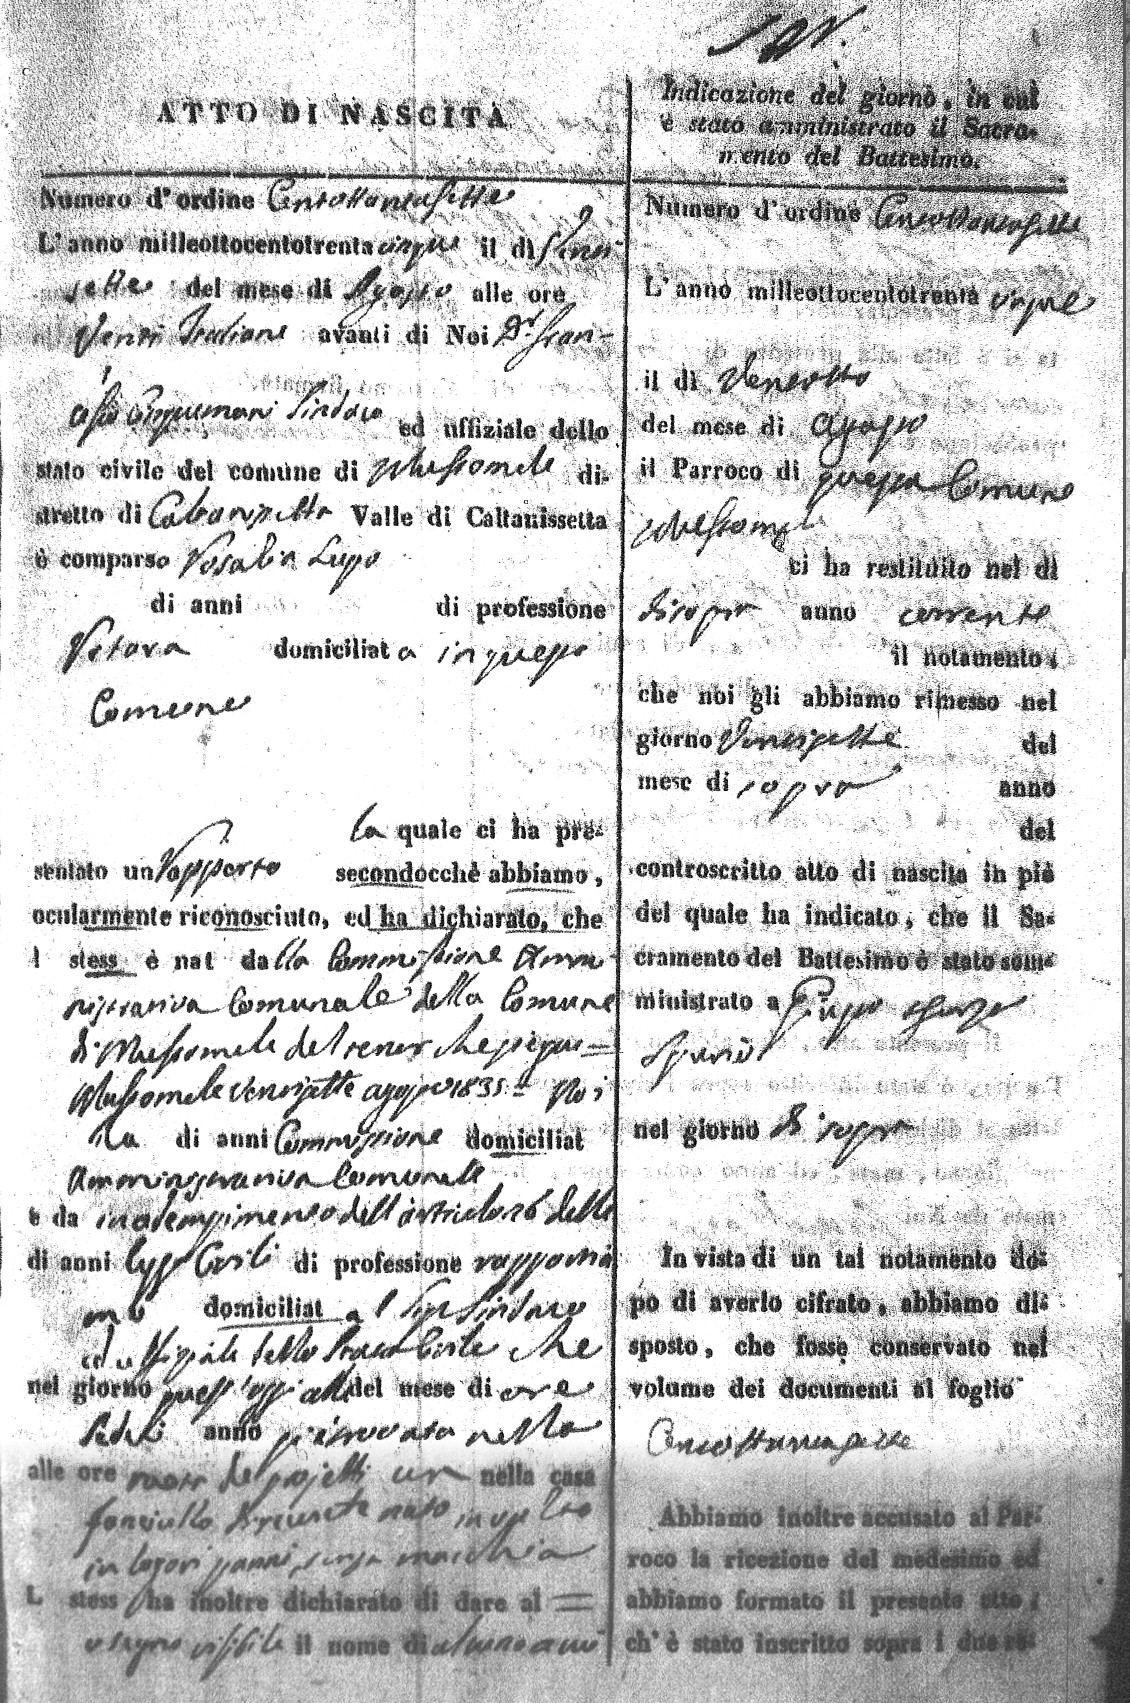 ATTO DI NASCITA
Numero d'ordine Centottantasette
L'anno milleottocentotrenta cinque il dì Venti
sette del mese di Agosto alle ore
Venti Italiane avanti di Noi Dr. Fran-
Sindaco ed uffiziale dello
stato civile del comune di Mussomele di-
stretto di Caltanissetta Valle di Caltanissetta
è comparso Rosalia Lupo
di anni di professione
domiciliat a in questo
Comune
la quale ci ha pre-
sentato un Rapporto secondocchè abbiamo,
ocularmente riconosciuto, ed ha dichiarato, che
l stess è nat dalla Commissione Ammi
nistrativa Comunale della Comune
di Mussomele del tenor che siegue =
Mussomele Ventisette agosto 1835 = Noi
la di anni Commissione domiciliat
Amministrativa Comunale
e da inadempimento dell'articolo 26 delle
di anni leggi Civili di professione rapportia
mo domiciliat a l Sig. Sindaco
ed uffiziale dello Stato Civile che
nel giorno quest'oggi alle del mese di ore
Sedeci anno nella
alle ore de projetti un nella casa
fanciullo nato involto
in logori panni, senza macchia
L stess ha inoltre dichiarato di dare al =
o segno visibile il nome di
Indicazione del giorno, in cui
è stato amministrato il Sacra-
mento del Battesimo.
Numero d'ordine Centottantasette
L'anno milleottocentotrenta cinque
il dì Ventotto
del mese di Agosto
il Parroco di questa Comune
Mussomele
ci ha restituito nel dì
di sopra anno corrente
il notamento,
che noi gli abbiamo rimesso nel
giorno Ventisette del
mese di sopra anno
del
controscritto atto di nascita in piè
del quale ha indicato, che il Sa-
cramento del Battesimo è stato som-
ministrato a
nel giorno di sopra
In vista di un tal notamento do-
po di averlo cifrato, abbiamo di-
sposto, che fosse conservato nel
volume dei documenti al foglio
Centottantasette
Abbiamo inoltre accusato al Par-
roco la ricezione del medesimo ed
abbiamo formato il presente atto,
ch'è stato inscritto sopra i due re-